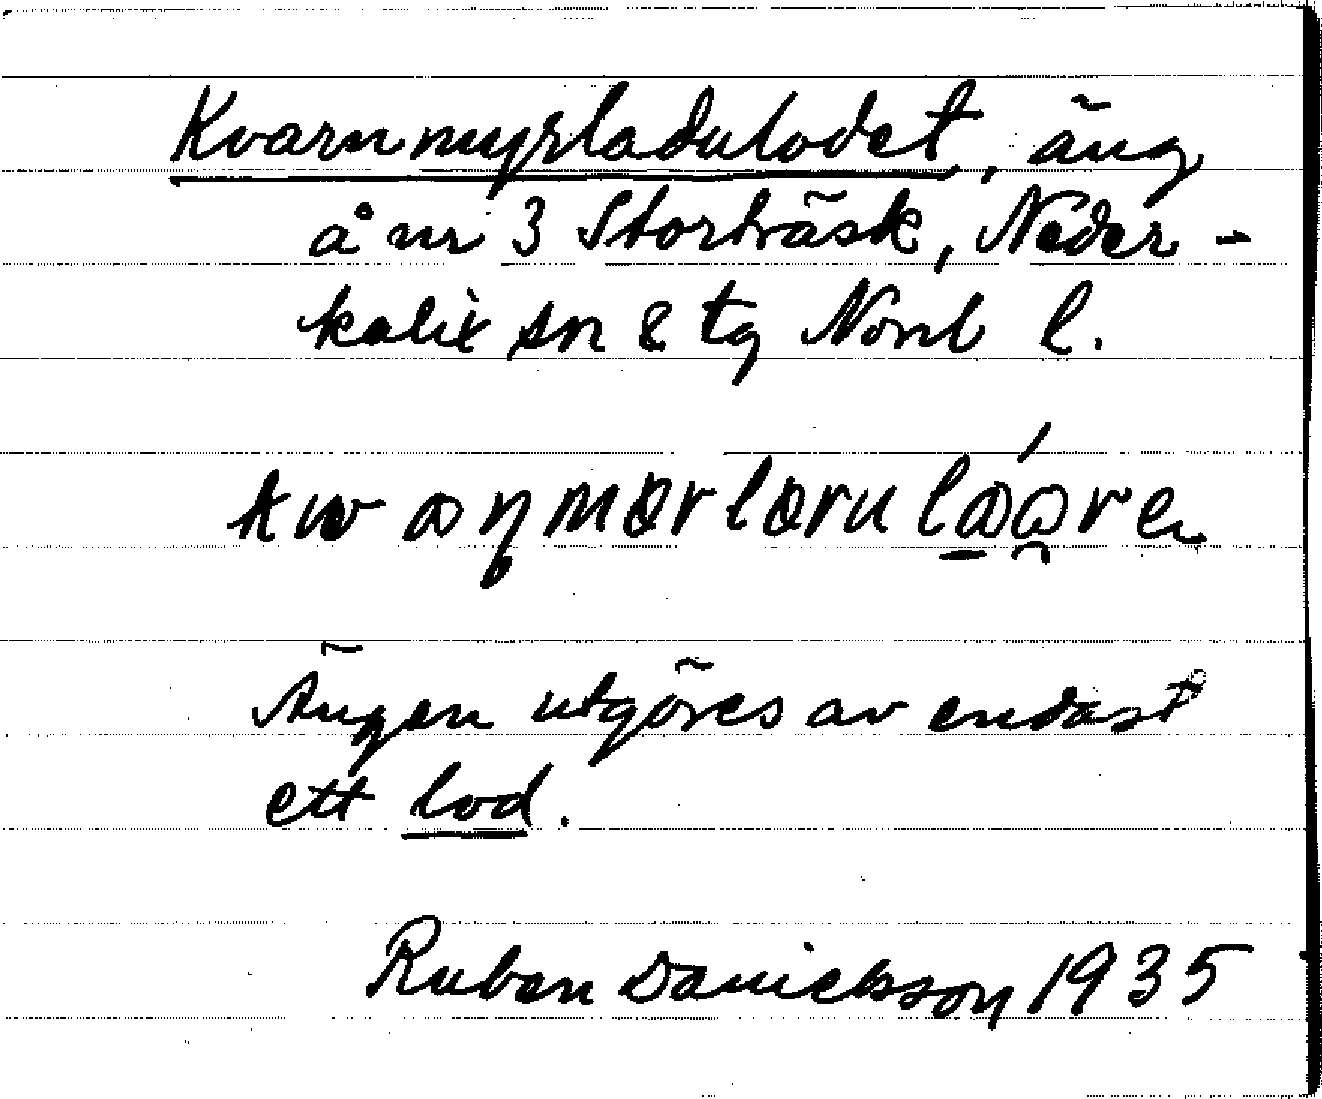 Kvarnmyrladulodet, äng
å nr 3 Storträsk, Neder-
kalix sn & tg Norrb l.
Ängen utgöres av endast
ett lod.
Ruben Danielsson 1935